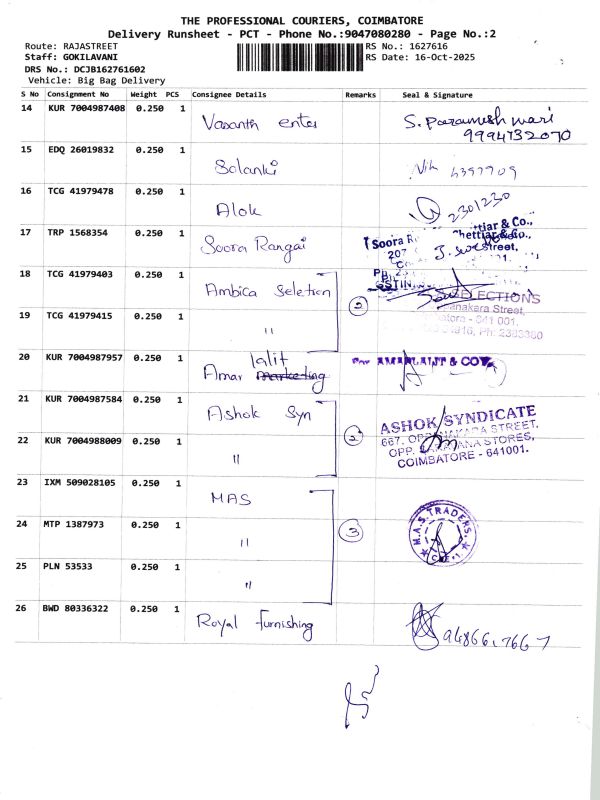 THE PROFESSIONAL COURIERS, COIMBATORE
Delivery Runsheet - PCT - Phone No.:9047080280 - Page No.:2
Route: RAJASTREET RS No.: 1627616
Staff: GOKILAVANI RS Date: 16-Oct-2025
DRS No.: DCJB162761602
Vehicle: Big Bag Delivery
S No Consignment No Weight PCS Consignee Details Remarks Seal & Signature
14 KUR 7004987408 0.250 1 Vasanth enter S. Parameshwari
9994732070
15 EDQ 26019832 0.250 1 Solanki
16 TCG 41979478 0.250 1 Alok 2301230
17 TRP 1568354 0.250 1 Soora Rangai Soora
207
18 TCG 41979403 0.250 1 Ambica Seletion 2 SELECTIONS
19 TCG 41979415 0.250 1 " Street,
641 001.
20 KUR 7004987957 0.250 1 Amar lalit marketing For AMAR LALIT & CO.
21 KUR 7004987584 0.250 1 Ashok Syn 2 ASHOK SYNDICATE
667, OPPANAKARA STREET,
22 KUR 7004988009 0.250 1 " OPP. STORES,
COIMBATORE - 641001.
23 IXM 509028105 0.250 1 MAS
24 MTP 1387973 0.250 1 " 3 M.A.S. TRADERS
25 PLN 53533 0.250 1 "
26 BWD 80336322 0.250 1 Royal Furnishing